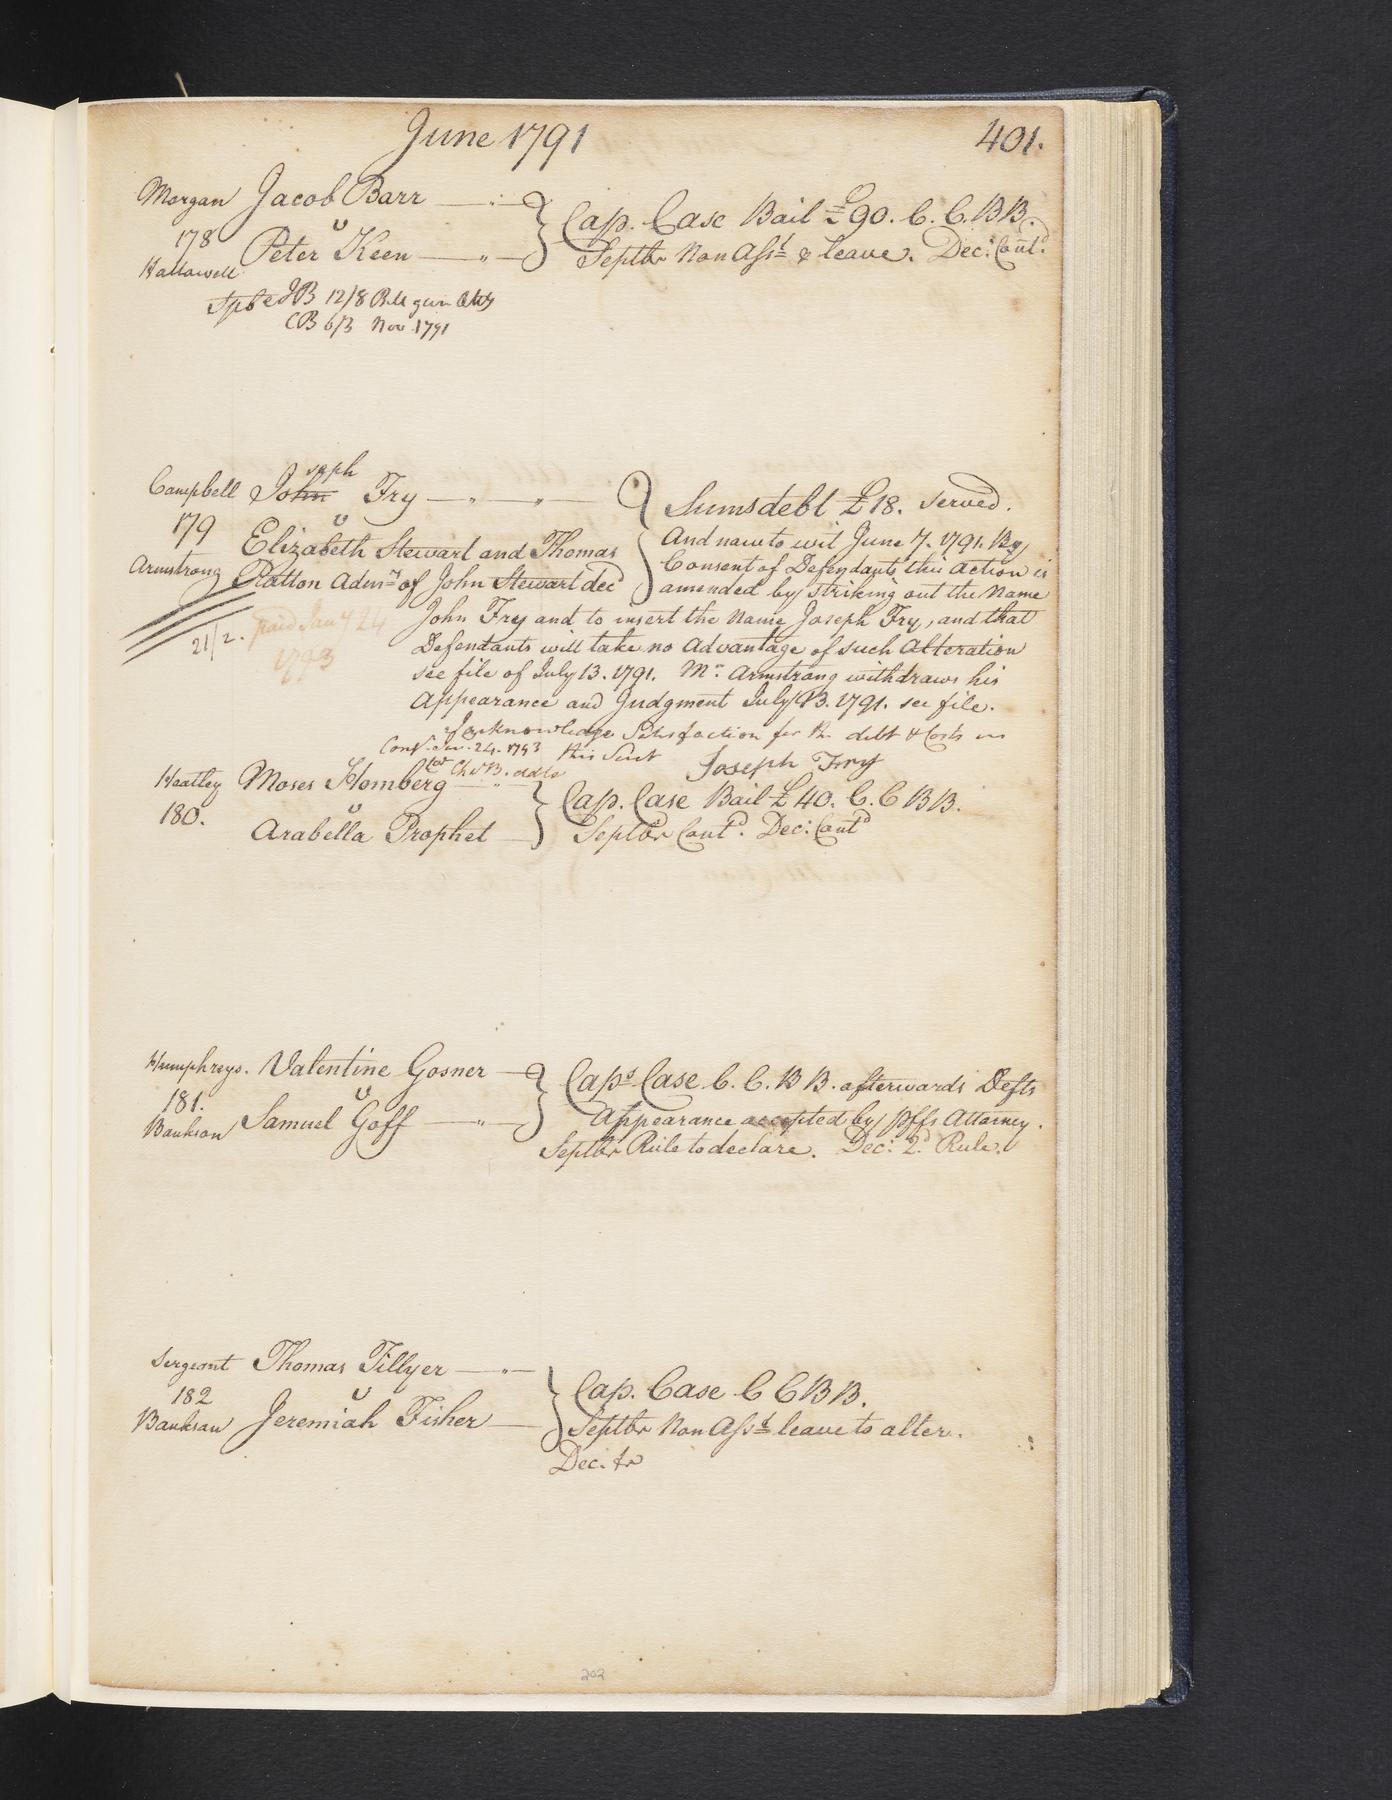 June 1791
401.
Morgan Jacob Barr
178 v
Hallowell Peter Keen
Cap. Case Bail £90. C. C. BB.
Septbr Non Asst & leave. Dec: Contd
12/8
CB 6/3 Nov 1791
Campbell John seph Fry
179 v
Elizabeth Stewart and Thomas
Armstrong Patton Admrs of John Stewart decd
Sums debt £18. served.
And now to wit June 7. 1791. By
Consent of Defendants this action is
amended by striking out the Name
John Fry and to insert the Name Joseph Fry, and that
Defendants will take no Advantage of such Alteration
see file of July 13. 1791. Mr Armstrong withdraws his
Appearance and Judgment July 13. 1791. see file.
21/2. paid Jany 24
1793
I acknowledge Satisfaction for the debt & Costs in
this Suit Joseph Fry
Jan. 24. 1793
Heatley Moses Homberg
180. v
Arabella Prophet
Cap. Case Bail £40. C. C BB.
Septbr Contd. Dec: Contd
Humphreys. Valentine Gosner
181. v
Bankson Samuel Goff
Caps Case C. C. BB. afterwards Defts
Appearance accepted by Plffs Attorney.
Septbr Rule to declare. Dec: 2d Rule.
Sergeant Thomas Tillyer
182 v
Bankson Jeremiah Fisher
Cap. Case C C BB.
Septbr Non Asst leave to alter.
Dec. fr
202